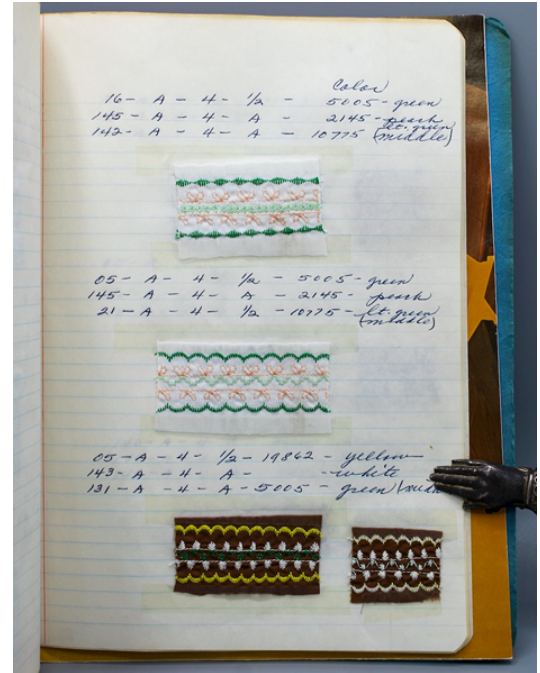 Color
16 - A - 4 - 1/2 - 5005 - green
145 - A - 4 - A - 2145 - peach
142 - A - 4 - A - 10775 (lt. green
middle)
05 - A - 4 - 1/2 - 5005 - green
145 - A - 4 - A - 2145 - peach
21 - A - 4 - 1/2 - 10775 - lt. green
(middle)
05 - A - 4 - 1/2 - 19862 - yellow
143 - A - 4 - A - - white
131 - A - 4 - A - 5005 - green